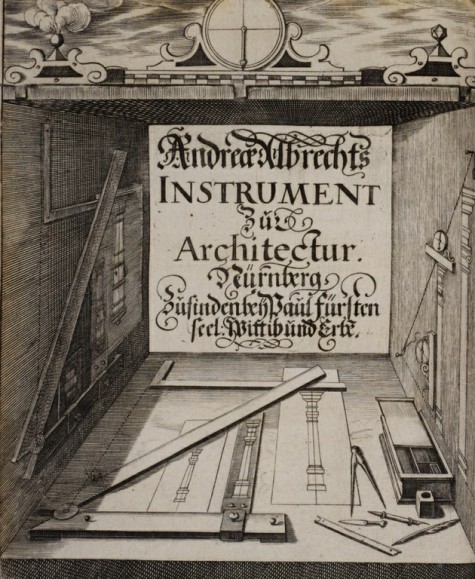 Andreæ Albrechts
INSTRUMENT
Zür
Architectur.
Nürnberg,
Zufinden beÿ Paul Fürsten
seel: Wittib und Erbe.